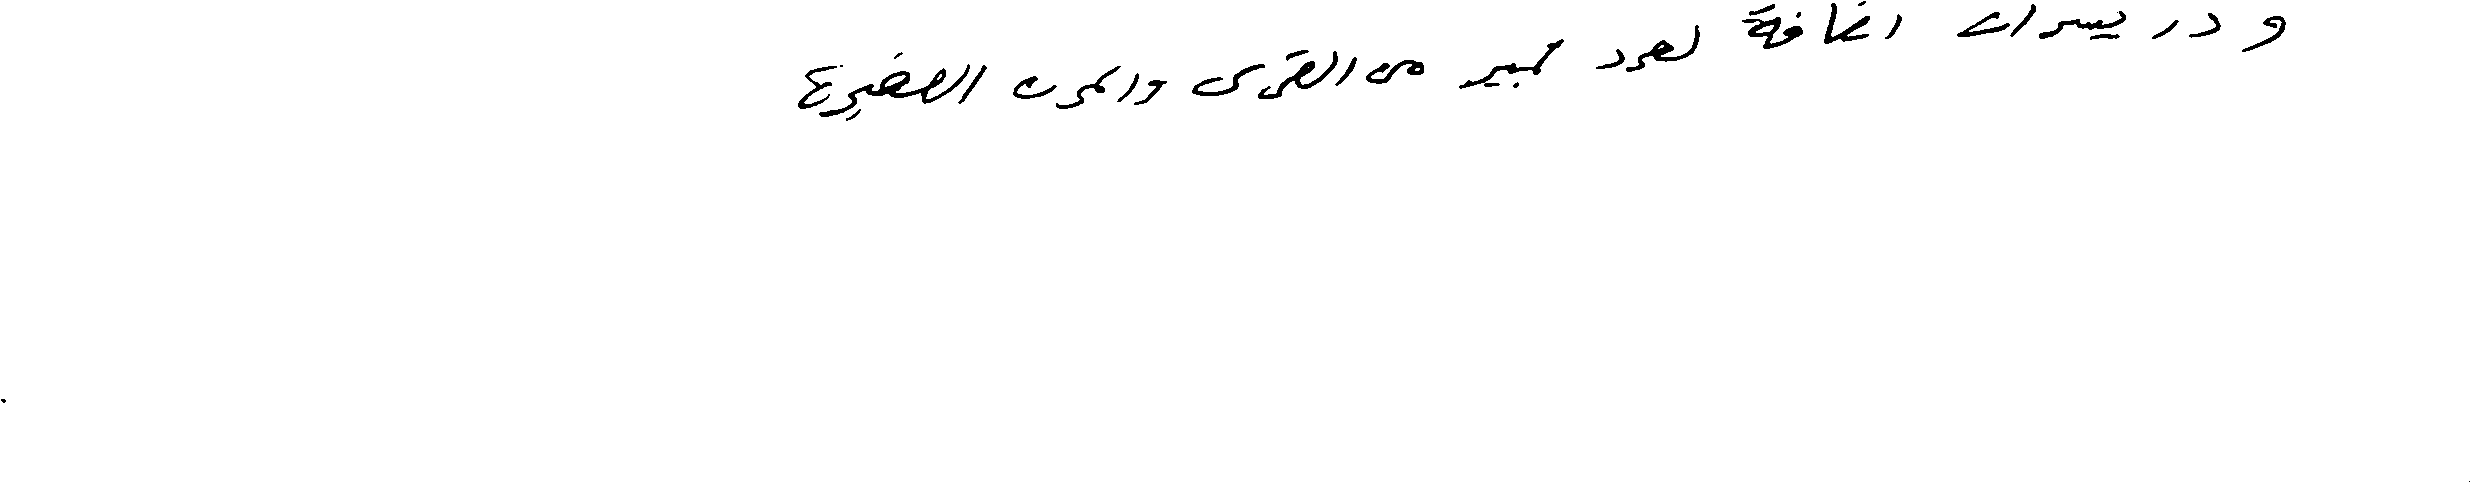 ودريسدن اضافة لعدد كبير من القرى والمدن الصغيرة